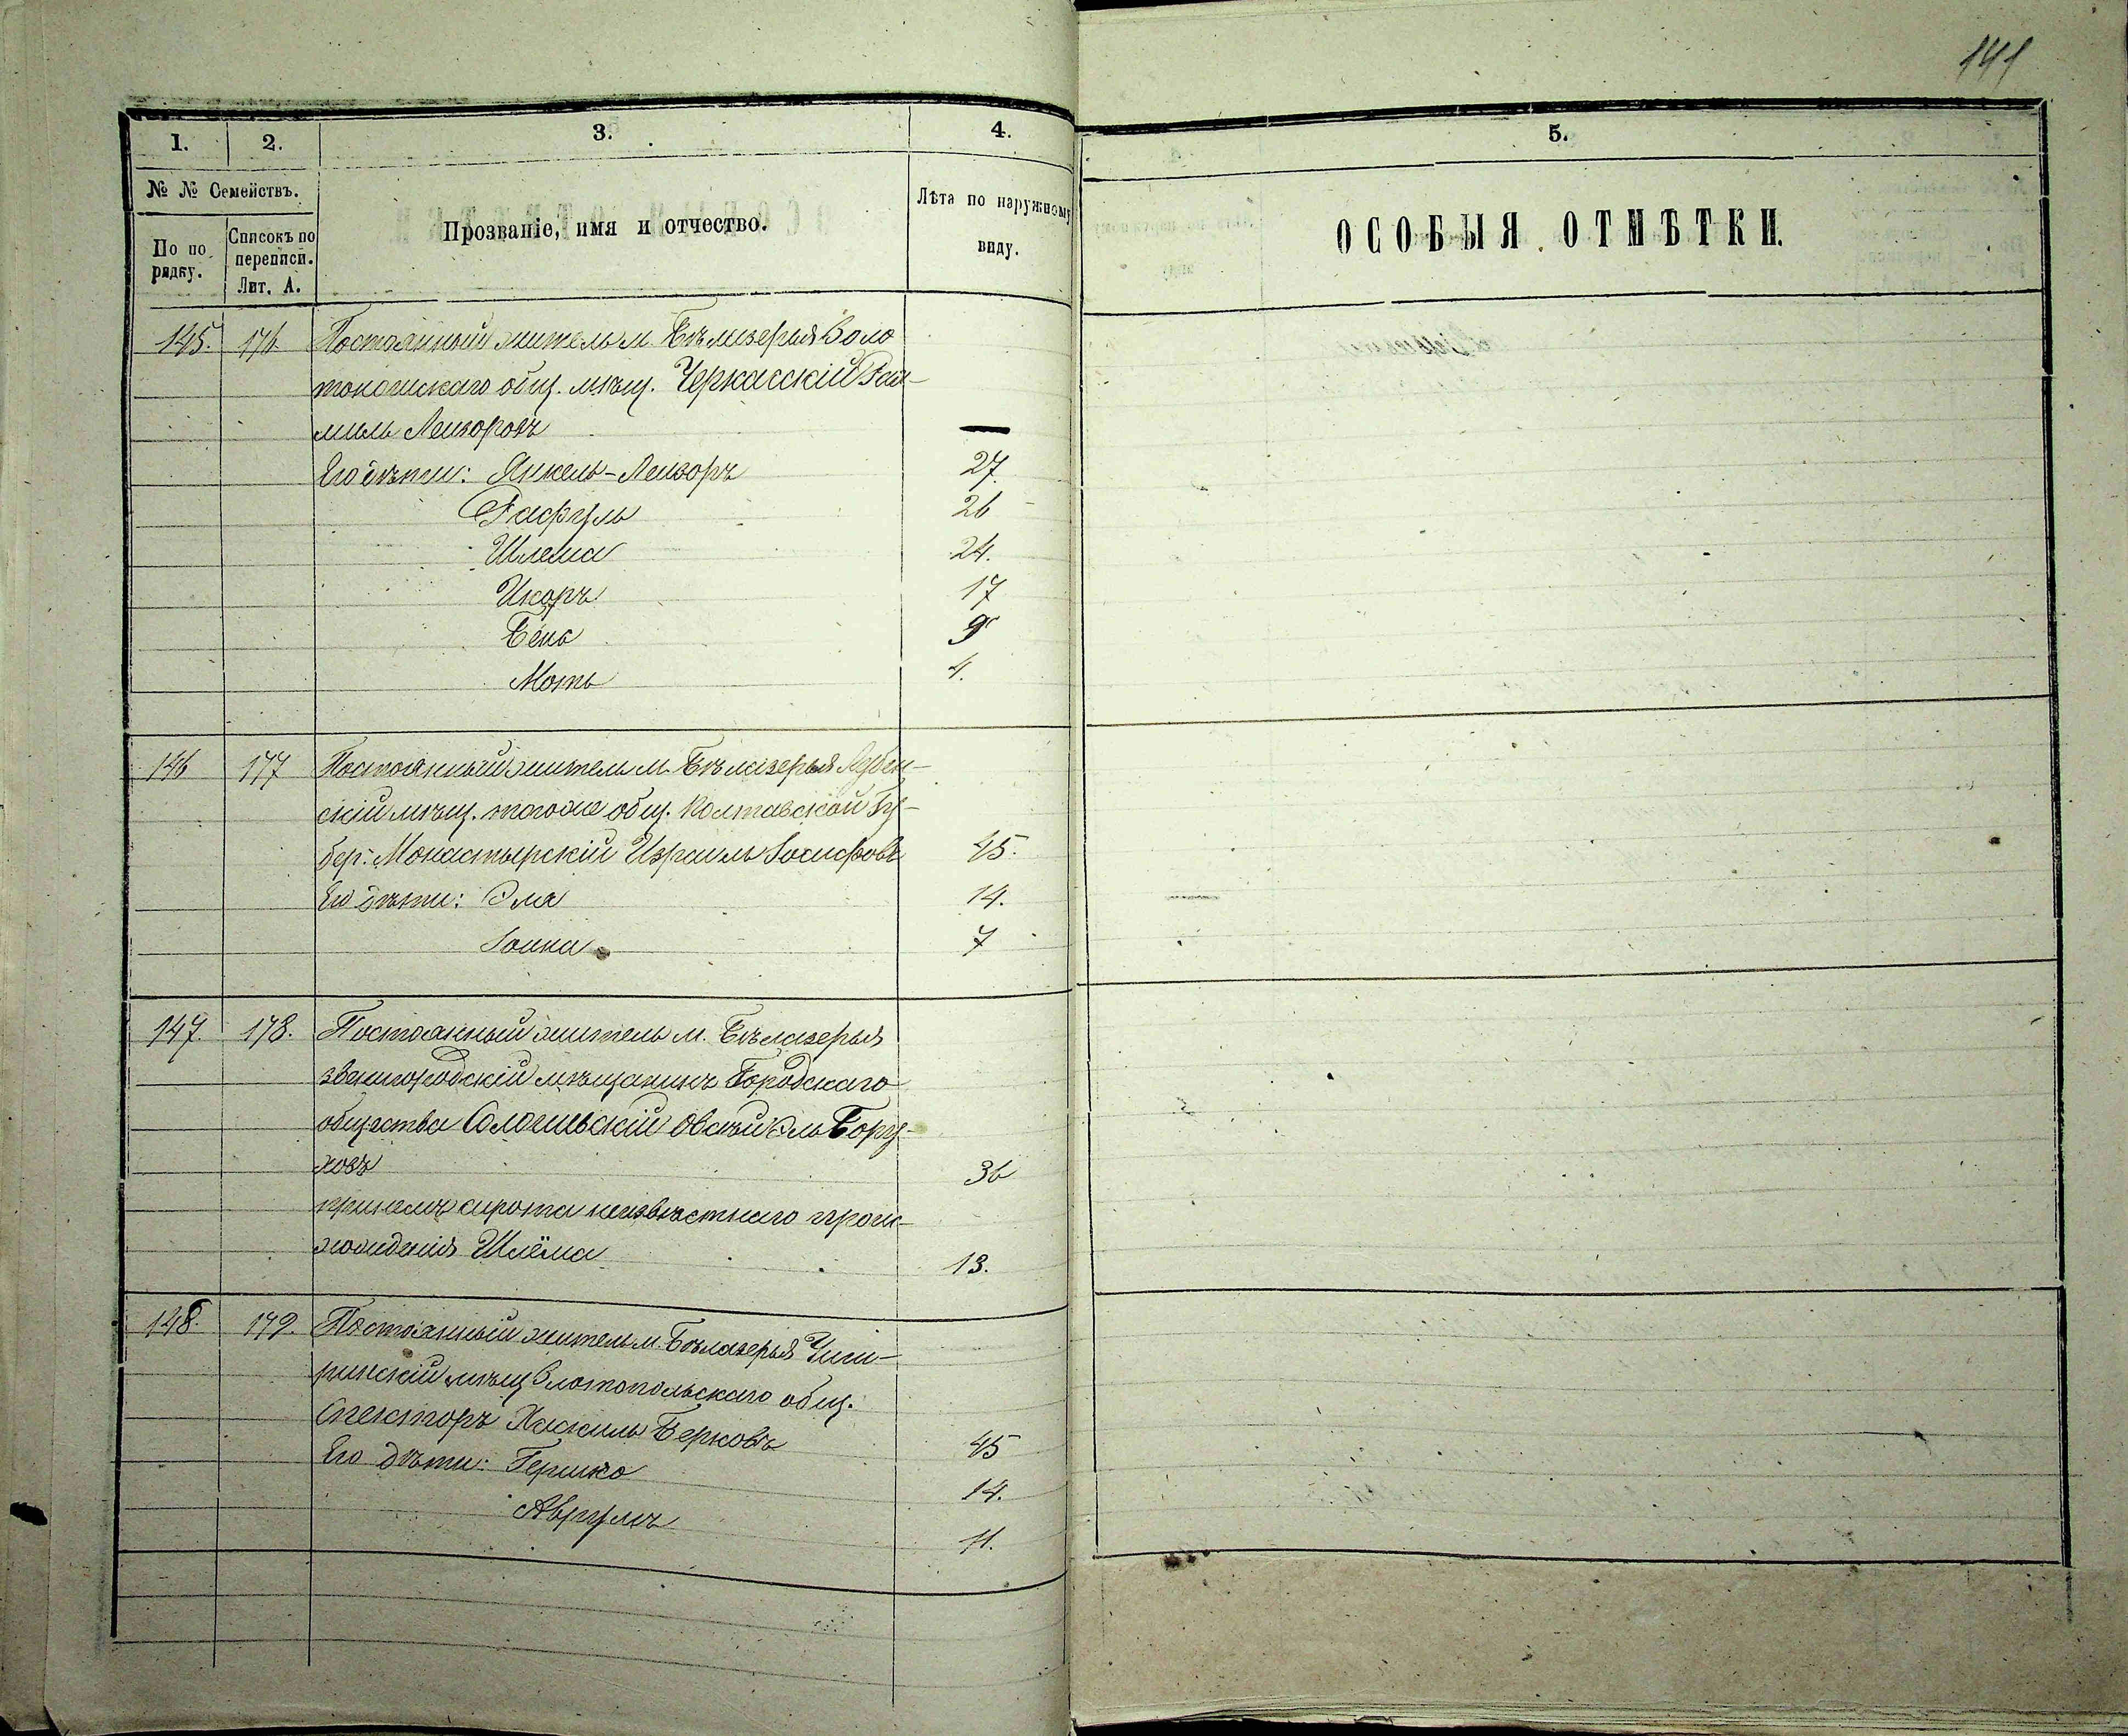 141
1. 2. 3. 4. 5.
№ № Семействъ.
По по рядку.
Списокъ по переписи. Лит. А.
Прозваніе, имя и отчество.
Лѣта по наружному виду.
ОСОБЫЯ ОТМѢТКИ.
145. 176. Постоянный житель м. Бѣлазерья Золо
тоношскаго общ. мѣщ. Черкасскій Раи-
миль Лейзоровъ —
Его дѣти: Янкель-Лейзоръ 27.
Рафуль 26
Шлема 24.
Ицоръ 17
Бено 9
Моть 4.
146 177 Постоянный житель м. Бѣлазерья Лубен-
скій мѣщ. того же общ. Полтавской Гу-
бер. Монастырскій Израиль Іосифовъ 45.
Его дѣти: Эля 14.
7
147. 178. Постоянный житель м. Бѣлазерья
звенигородскій мѣщанинъ Городскаго
общества Овсѣй Эль Бору-
ховъ 36
пріемъ сирота неизвѣстнаго проис-
хожденія Шлёма 13.
148. 179. Постоянный житель м. Бѣлазерья Чиги-
ринскій мѣщ Златопольскаго общ.
Спекторъ Хаскиль Берковъ 45
Его дѣти: Гершко 14.
Аврумъ 11.